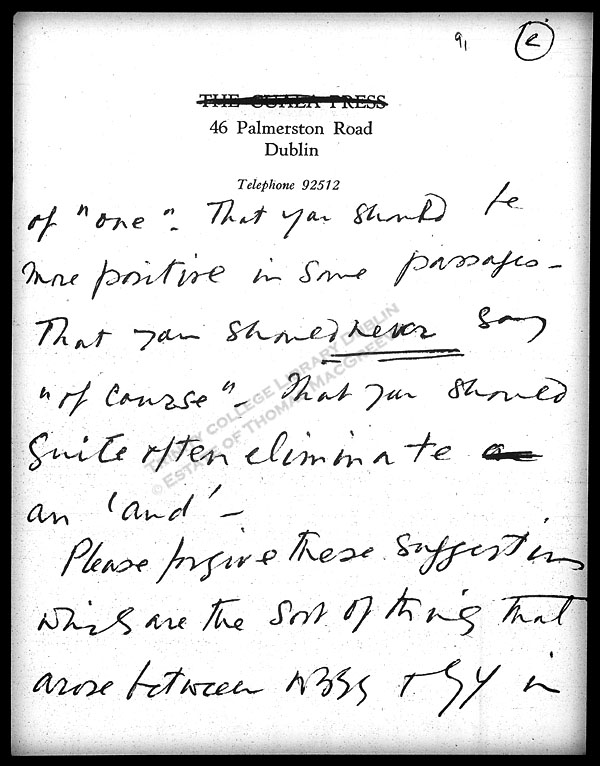 9, e
THE CUALA PRESS
46 Palmerston Road
Dublin
Telephone 92512
of "one". That you should be
more positive in some passages -
That you should never say
"of course" - That you should
quite often eliminate
an 'and' -
Please forgive these suggestions
which are the sort of thing that
arose between & GY in
TRINITY COLLEGE LIBRARY DUBLIN
© ESTATE OF THOMAS MACGREEVY